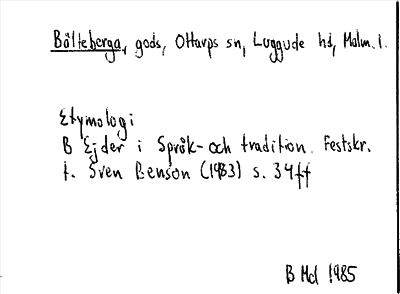 Bälteberga, gods, Ottarps sn, Luggude hd, Malm. l.
Etymologi
B Ejder i Språk- och tradition. Festskr.
t. Sven Benson (1983) s. 34ff
B Hd 1985